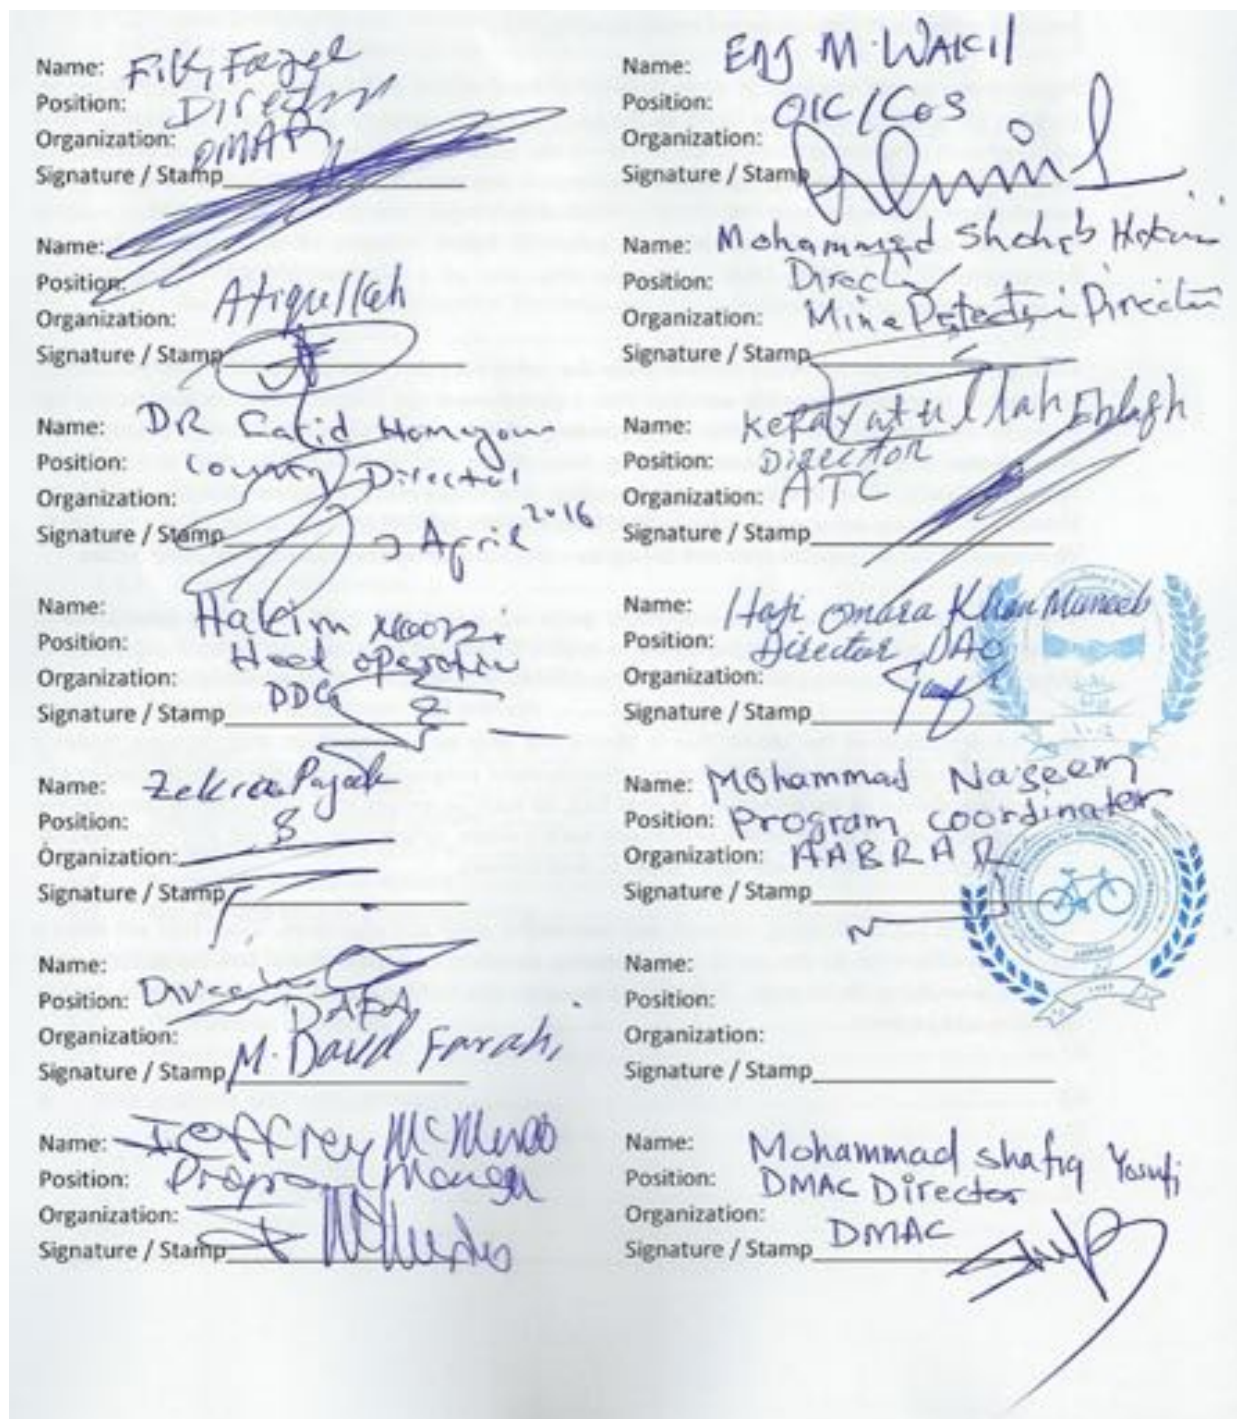 Name: Fazel
Position: Director
Organization: OMAR
Signature / Stamp
Name:
Position:
Organization: Atiqullah
Signature / Stamp
Name: DR Homayoun
Position: Country Director
Organization:
Signature / Stamp April 2016
Name: Hakim Noorzi
Position: Head operation
Organization:
Signature / Stamp DDG
Name: Zekria Payab
Position:
Organization:
Signature / Stamp
Name:
Position:
Organization: DAFA
Signature / Stamp M. Daud Farahi
Name: Jeffrey McMurdo
Position: Program Manager
Organization:
Signature / Stamp
Name: Eng M. WAKIL
Position: OIC/CoS
Organization:
Signature / Stamp
Name: Mohammad Shohab Hakimi
Position: Director
Organization: Mine Detection Director
Signature / Stamp
Name: Kefayatullah Eblagh
Position: DIRECTOR
Organization: ATC
Signature / Stamp
Name: Haji Omara Khan Muneeb
Position: Director DAO
Organization:
Signature / Stamp
Name: Mohammad Naseem
Position: Program coordinator
Organization: AABRAR
Signature / Stamp
Name:
Position:
Organization:
Signature / Stamp
Name: Mohammad shafiq Yosufi
Position: DMAC Director
Organization:
Signature / Stamp DMAC